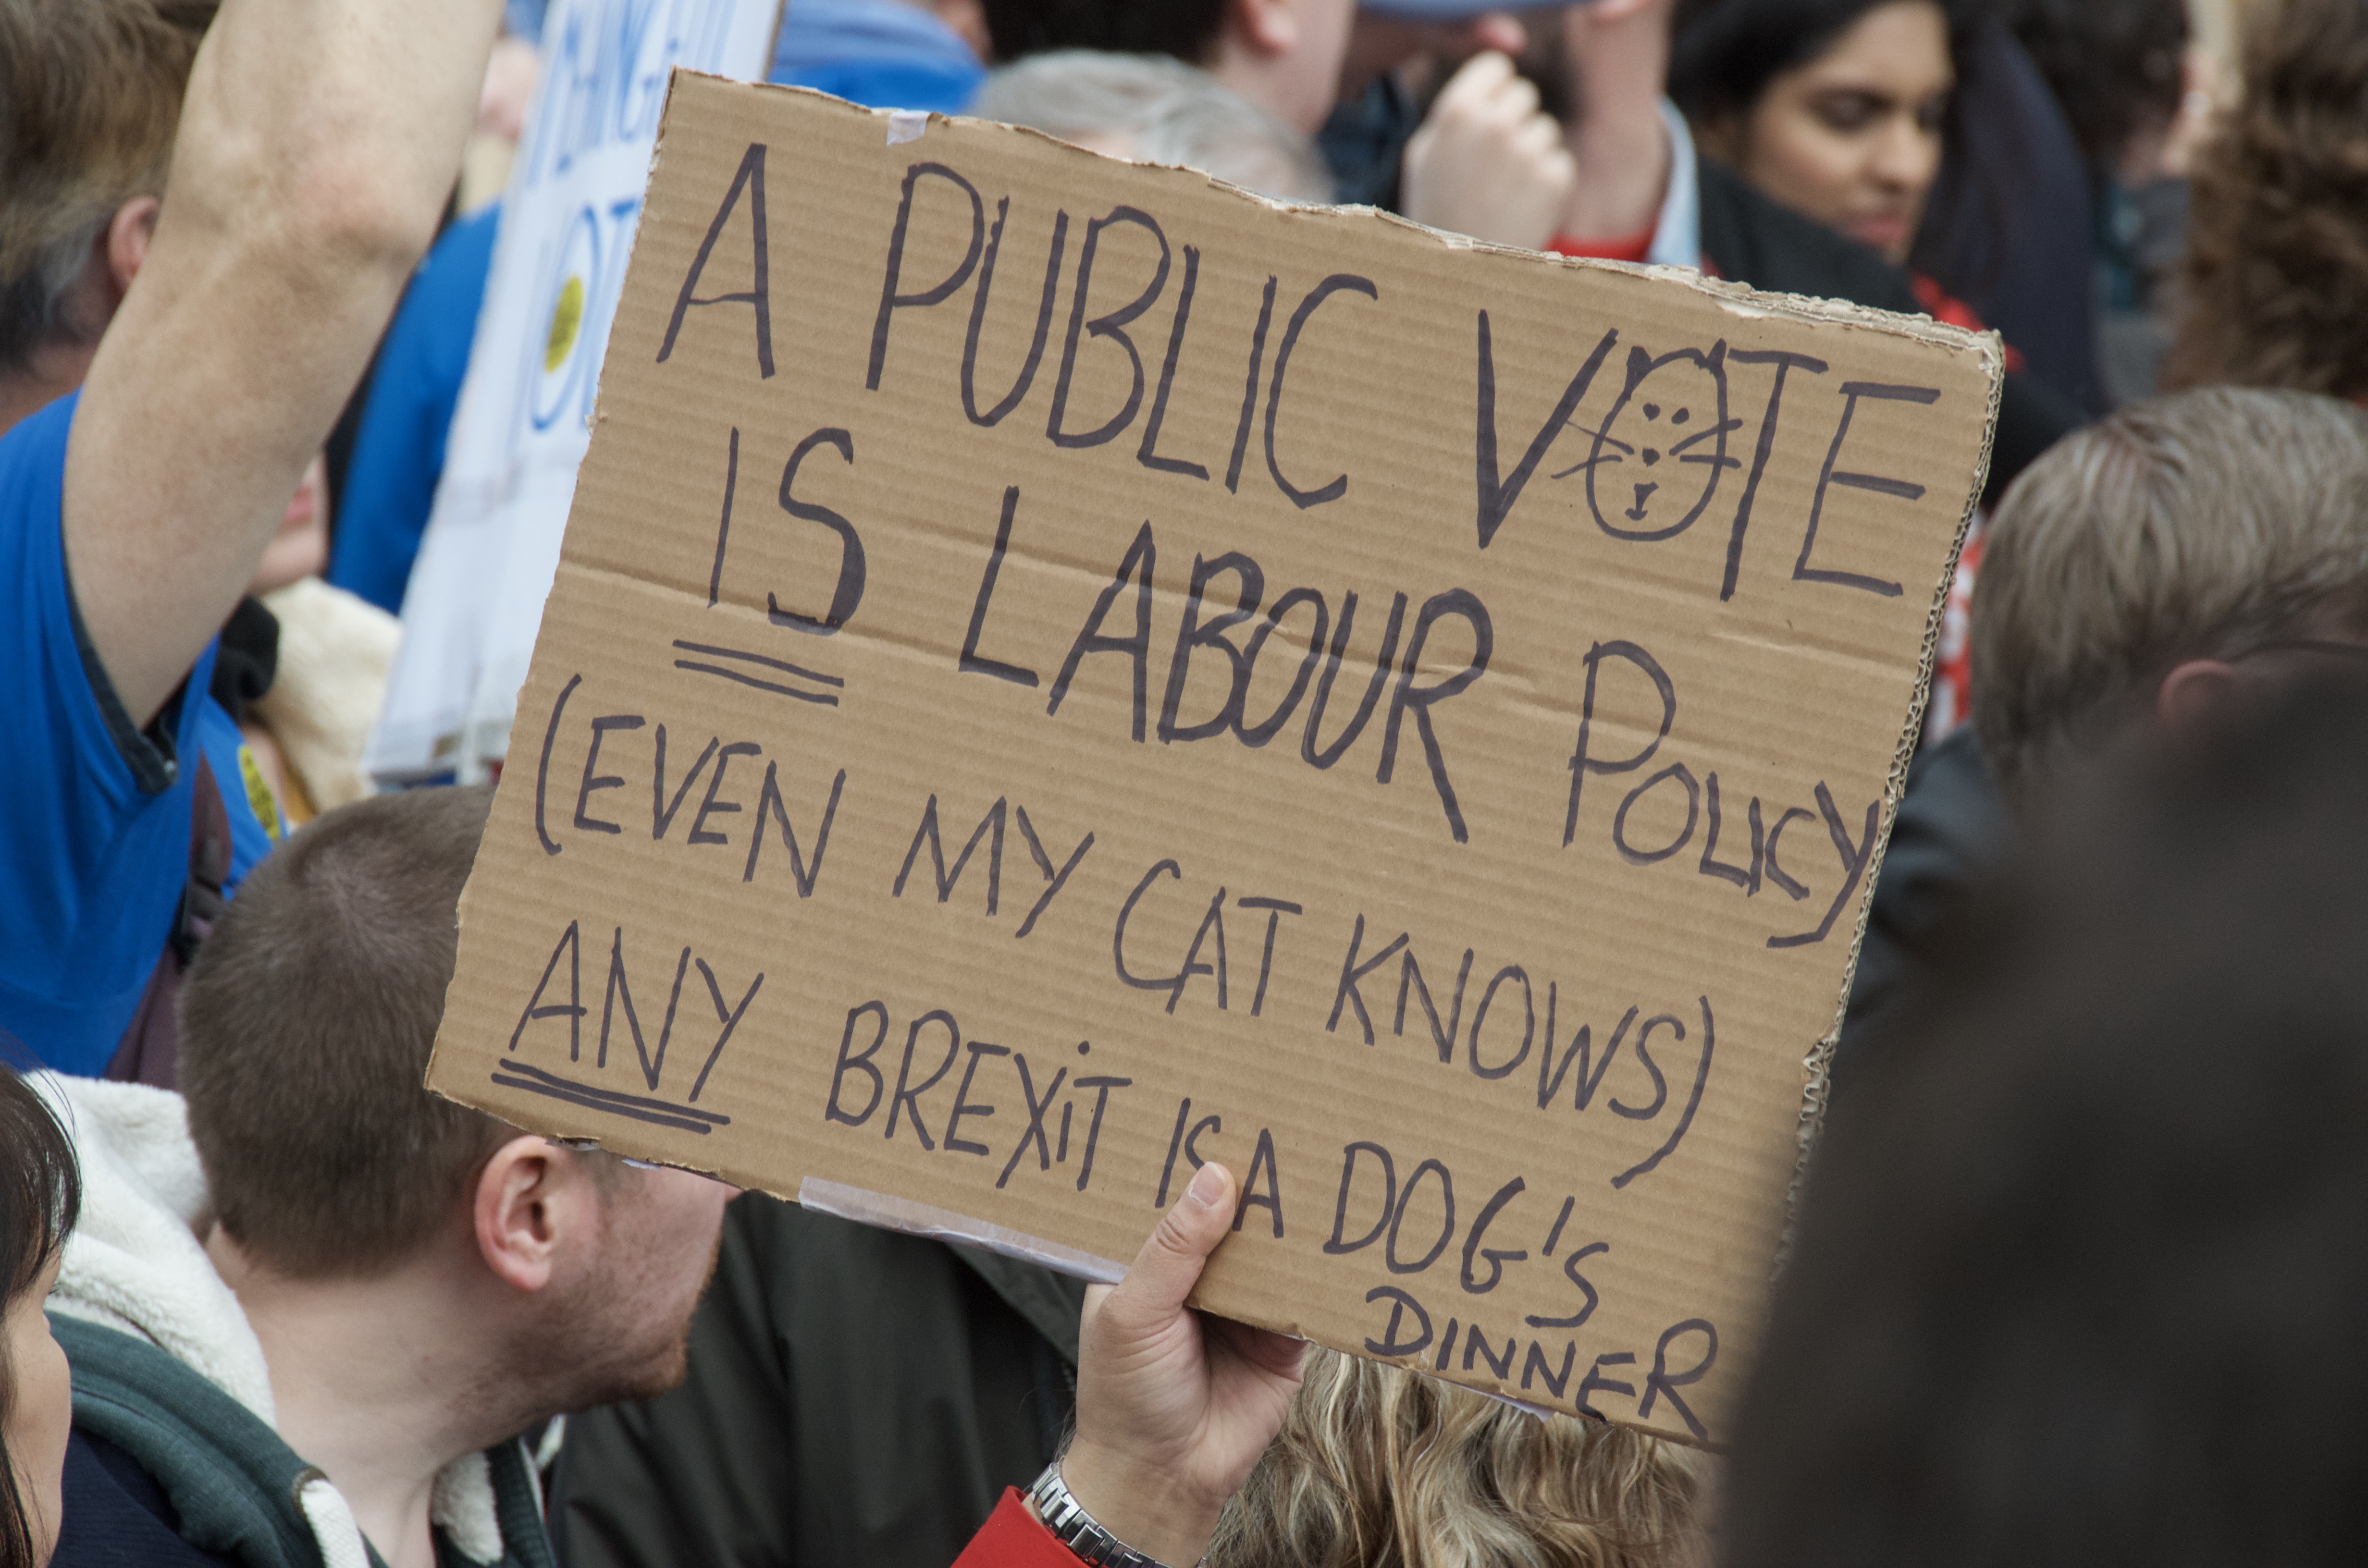 A PUBLIC VOTE
IS LABOUR POLICY
(EVEN MY CAT KNOWS)
ANY BREXiT IS A DOG'S
DINNER